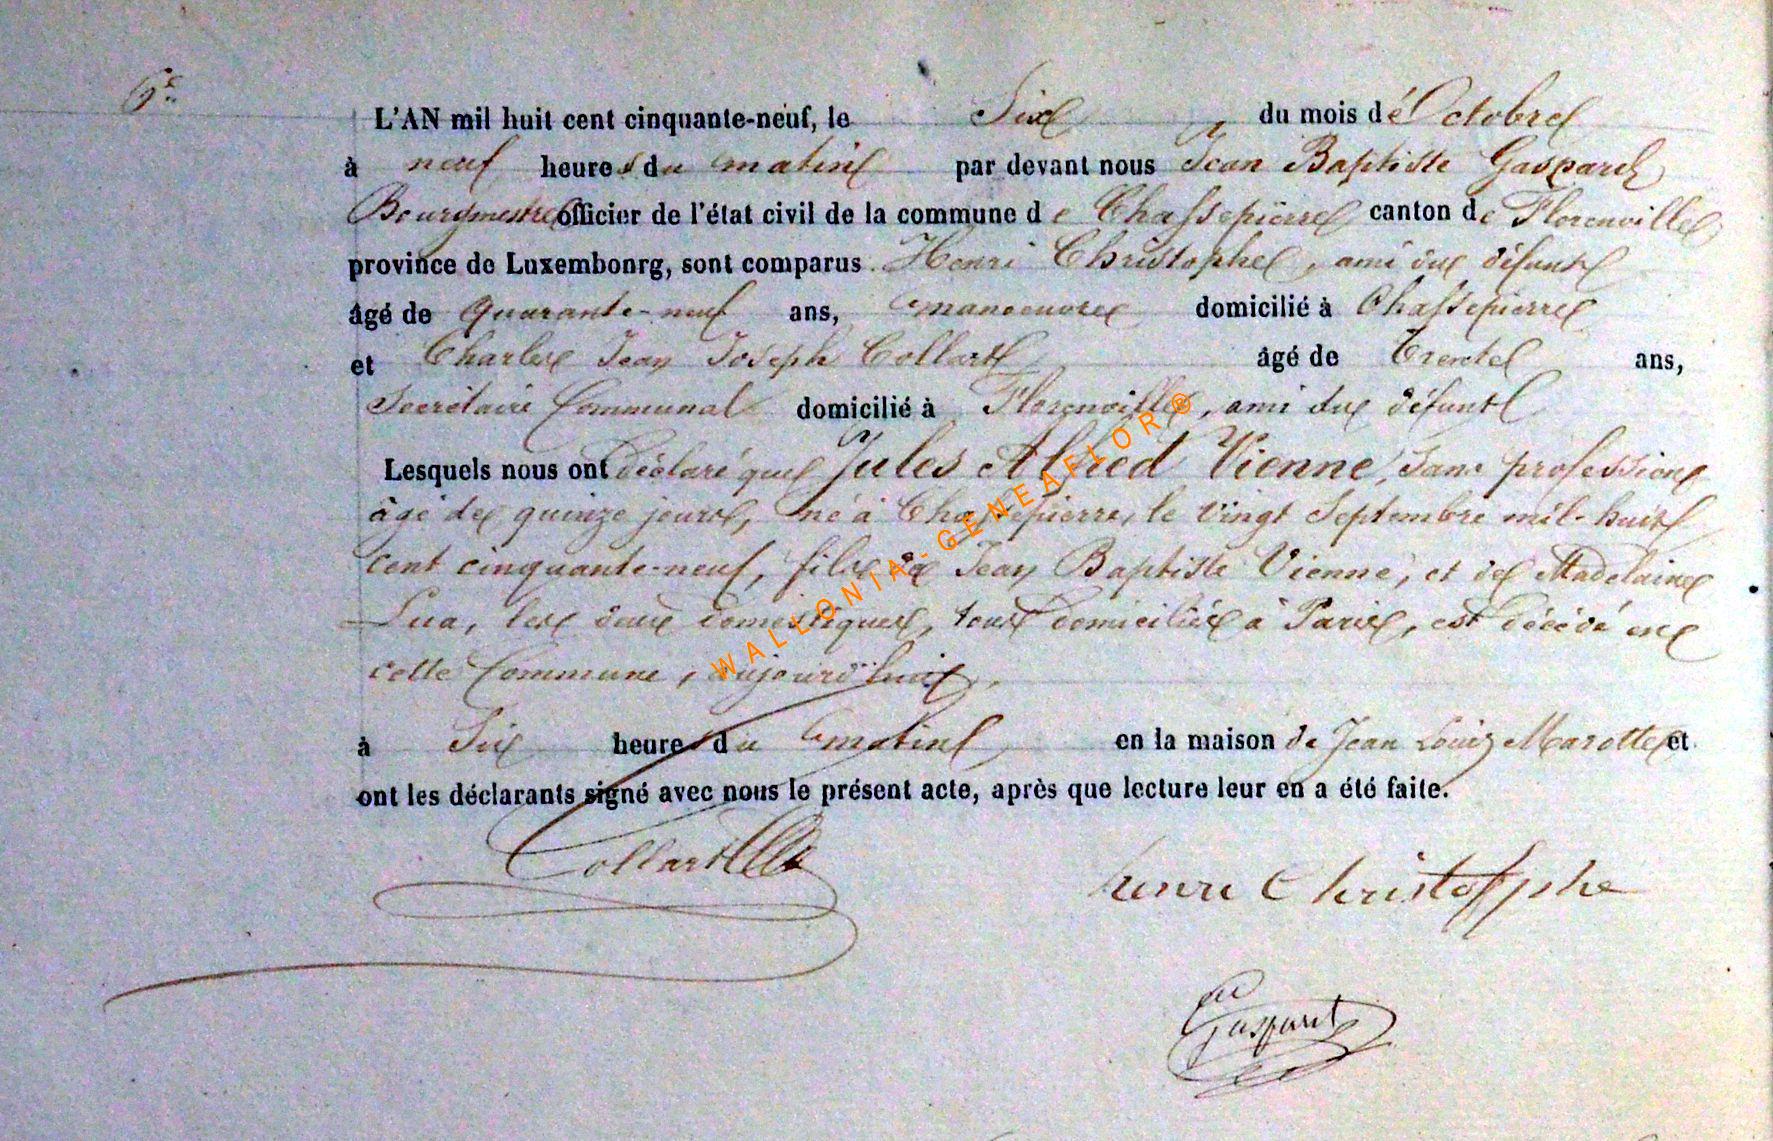 6e
L'AN mil huit cent cinquante-neuf, le Six du mois d'Octobre
à neuf heures du matin par devant nous Jean Baptiste Gaspard
Bourgmestre officier de l'état civil de la commune de Chassepierre canton de Florenville
province de Luxembonrg, sont comparus Henri Christophe, ami du défunt
âgé de Quarante-neuf ans, manoeuvre domicilié à Chassepierre
et Charles Jean Joseph Collart âgé de Trente ans,
Secrétaire Communal domicilié à Florenville, ami du défunt
Lesquels nous ont déclaré que Jules Alfred Vienne, sans profession
âgé de quinze jours, né à Chassepierre, le vingt Septembre mil-huit
cent cinquante-neuf, fils de Jean Baptiste Vienne, et de Madelaine
Lua, les deux domestiques, tous domiciliés à Paris, est décédé en
cette Commune, aujourd'hui,
à Six heures du matin en la maison de Jean Louis Marotte et
ont les déclarants signé avec nous le présent acte, après que lecture leur en a été faite.
Collart
henri Christophe
Gaspard
WALLONIA-GENEAFLOR®